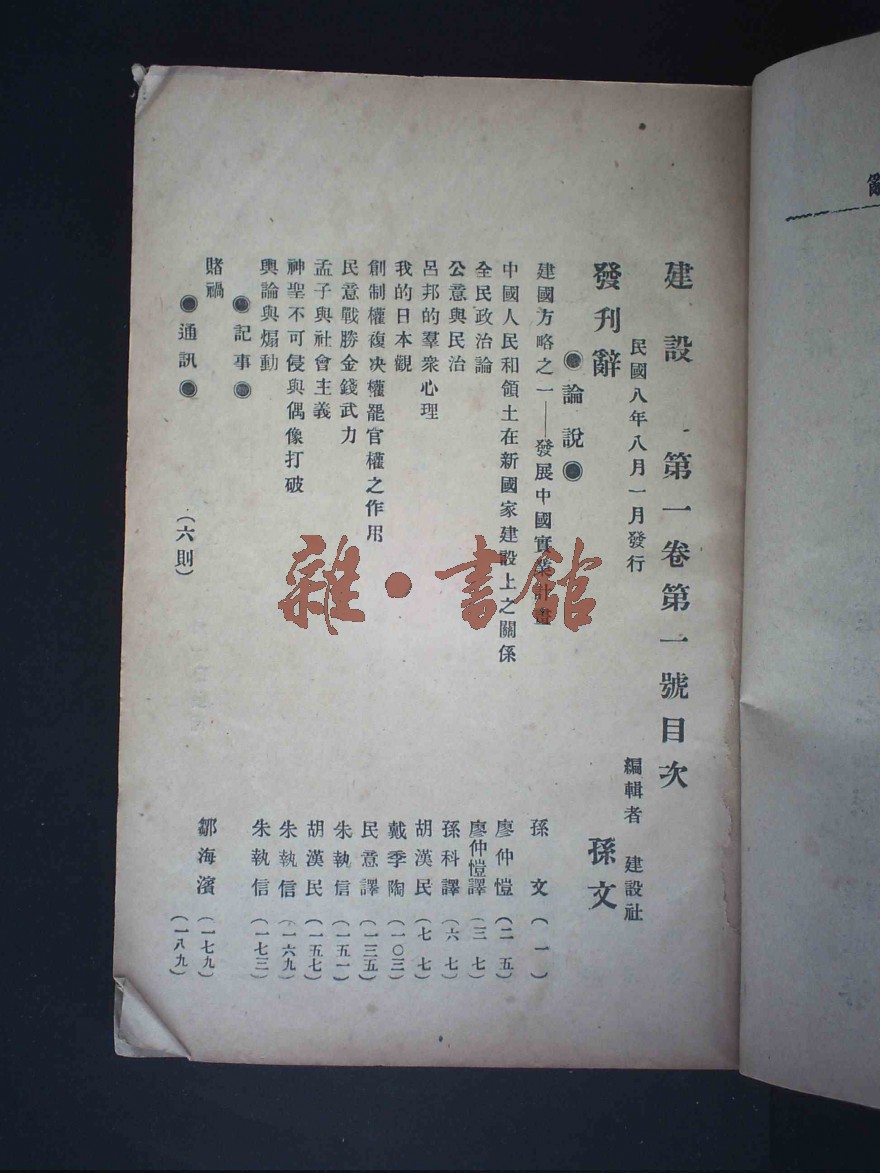 建設 第一卷第一號目次
民國八年八月一月發行 編輯者 建設社
發刊辭 孫文
●論說●
建國方略之一——發展中國實業計畫 孫文(一)
中國人民和領土在新國家建設上之關係 廖仲愷(二五)
全民政治論 廖仲愷譯(三七)
公意與民治 孫科譯(六七)
呂邦的羣衆心理 胡漢民(七七)
我的日本觀 戴季陶(一〇三)
創制權複决權罷官權之作用 民意譯(一三五)
民意戰勝金錢武力 朱執信(一五一)
孟子與社會主義 胡漢民(一五七)
神聖不可侵與偶像打破 朱執信(一六九)
輿論與煽動 朱執信(一七三)
●記事●
賭禍 鄒海濱(一七九)
●通訊● (六則) (一八九)
雜·書館
辭